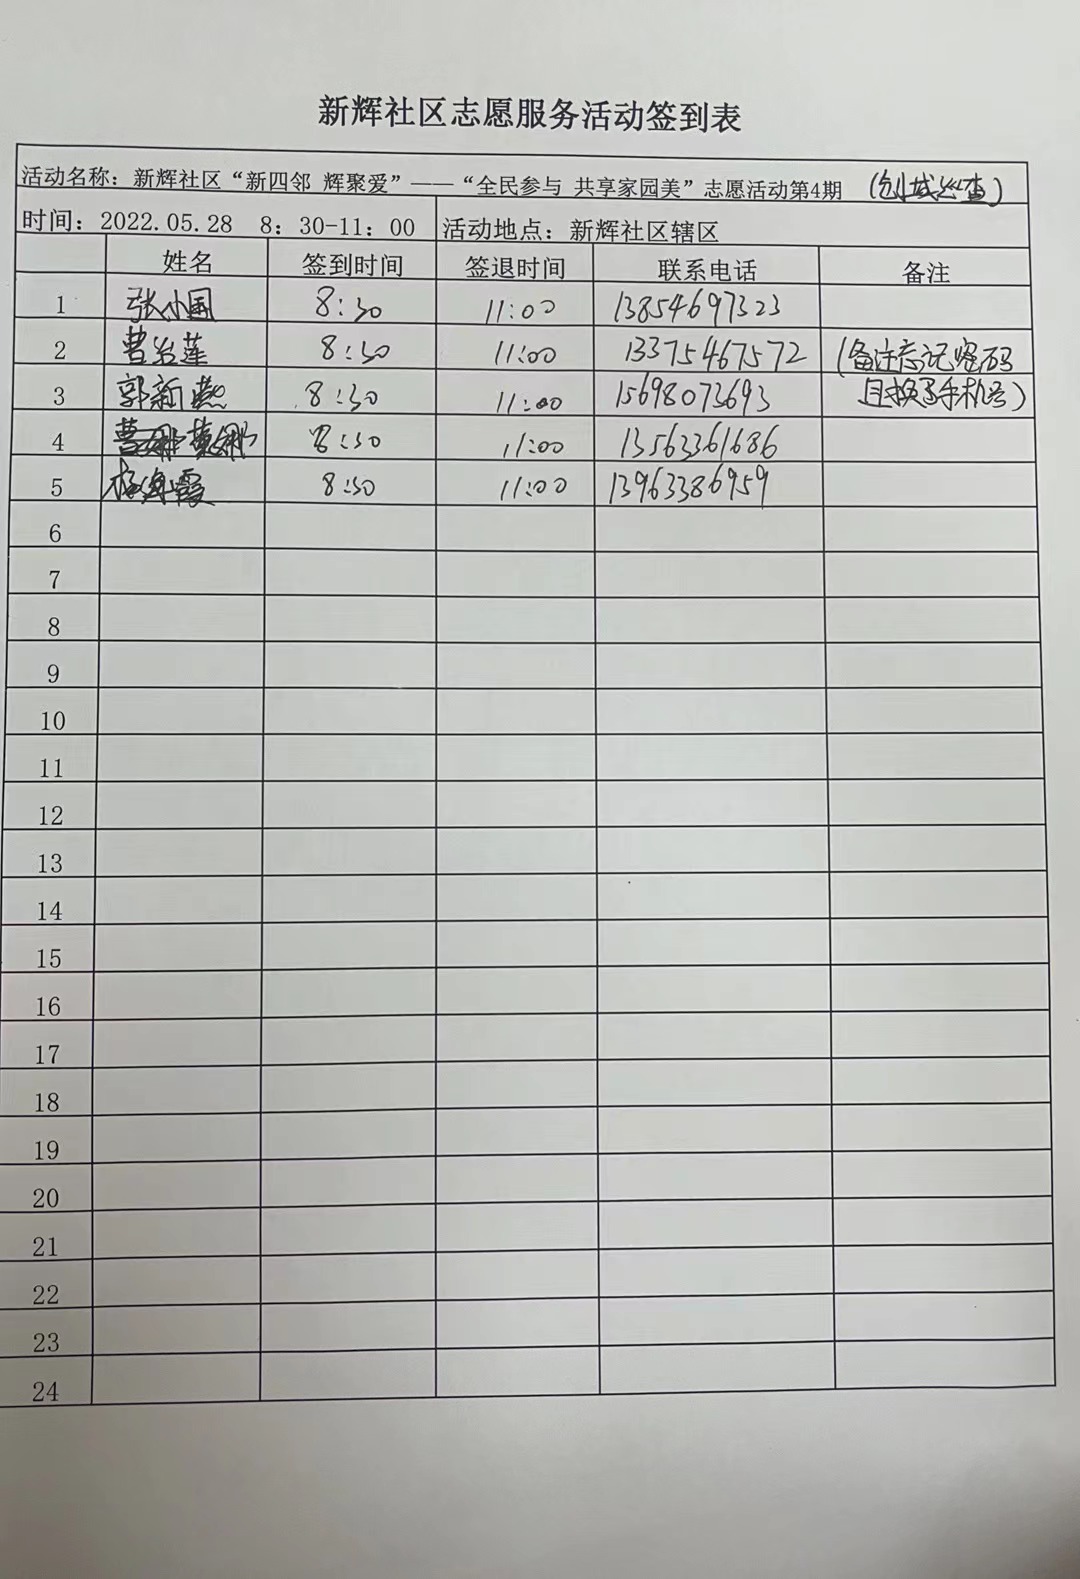 新辉社区志愿服务活动签到表
活动名称：新辉社区“新四邻 辉聚爱”——“全民参与 共享家园美”志愿活动第4期 (创城巡查)
时间：2022.05.28 8：30-11：00 活动地点：新辉社区辖区
姓名 签到时间 签退时间 联系电话 备注
1 张小国 8:30 11:00 13854697323
2 曹治莲 8:30 11:00 13375467572 (备注忘记密码
3 郭新燕 8:30 11:00 15698073693 且换了手机号)
4 黄娜 8:30 11:00 13563361686
5 杨海霞 8:30 11:00 13963386959
6
7
8
9
10
11
12
13
14
15
16
17
18
19
20
21
22
23
24